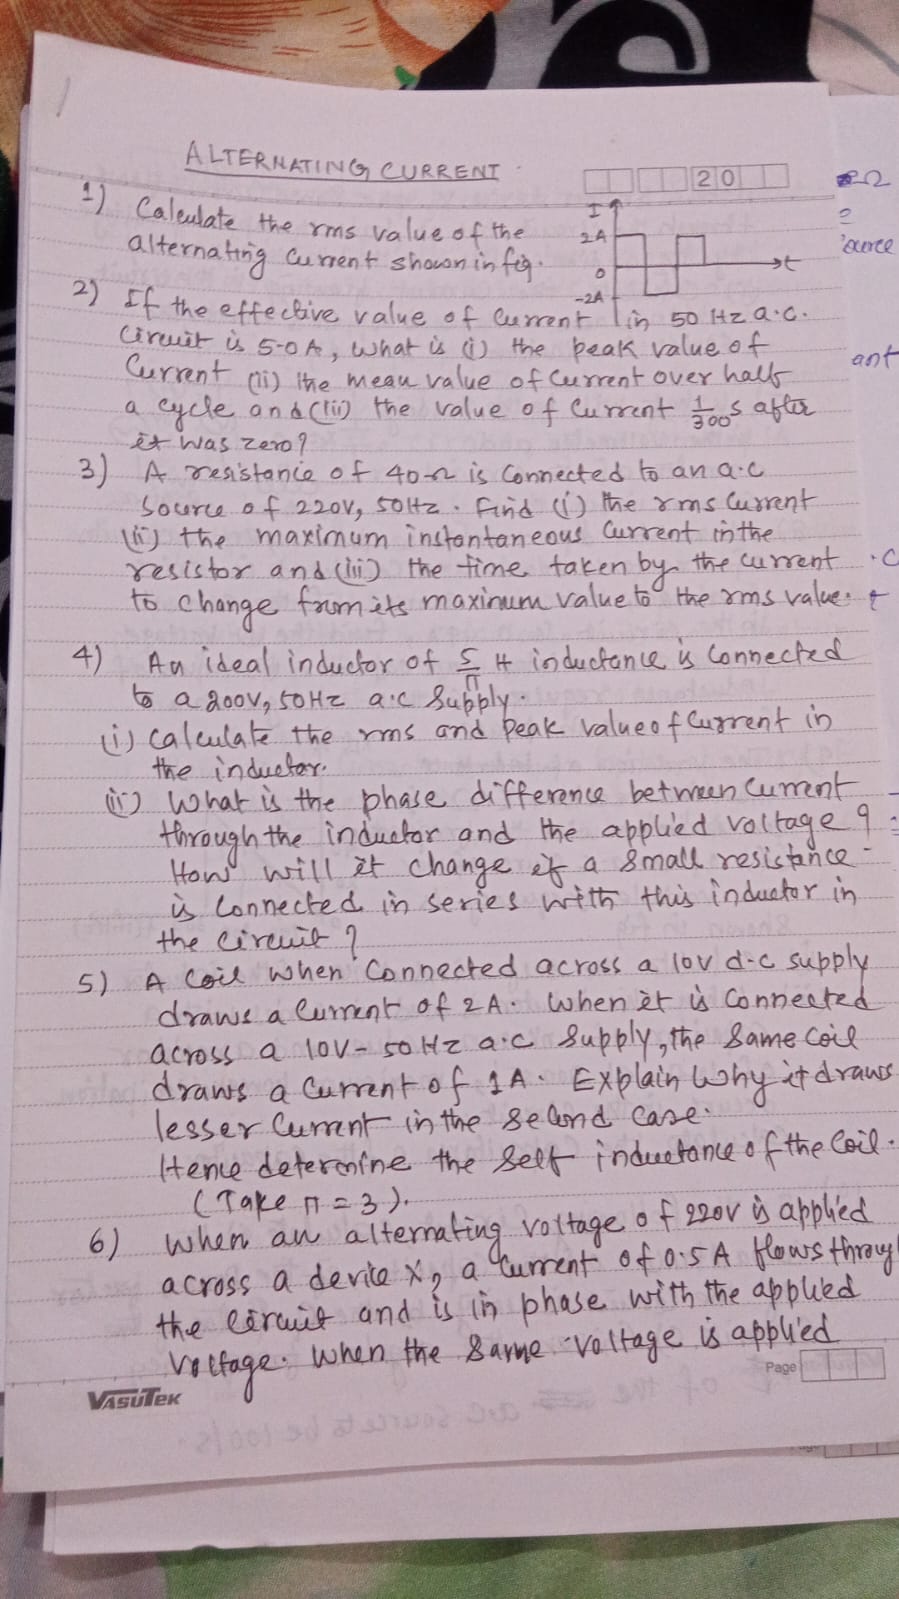 ALTERNATING CURRENT
20
1) Calculate the rms value of the
alternating current shown in fig.
I
2A
0
-2A
t
2) If the effective value of current in 50 Hz a.c.
circuit is 5.0 A, what is (i) the peak value of
current (ii) the mean value of current over half
a cycle and (iii) the value of current 1/300 s after
it was zero?
3) A resistance of 40 Ω is connected to an a.c
source of 220V, 50Hz. Find (i) the rms current
(ii) the maximum instantaneous current in the
resistor and (iii) the time taken by the current
to change from its maximum value to the rms value.
4) An ideal inductor of 5/π H inductance is connected
to a 200V, 50Hz a.c supply.
(i) calculate the rms and peak value of current in
the inductor.
(ii) What is the phase difference between current
through the inductor and the applied voltage?
How will it change if a small resistance
is connected in series with this inductor in
the circuit?
5) A coil when connected across a 10V d.c supply
draws a current of 2A. When it is connected
across a 10V-50Hz a.c supply, the same coil
draws a current of 1A. Explain why it draws
lesser current in the second case.
Hence determine the self inductance of the coil.
(Take π = 3).
6) When an alternating voltage of 220V is applied
across a device X, a current of 0.5 A flows throug
the circuit and is in phase with the applied
voltage. When the same voltage is applied
Page
VASUTEK
Ω
?
ource
ant
.C